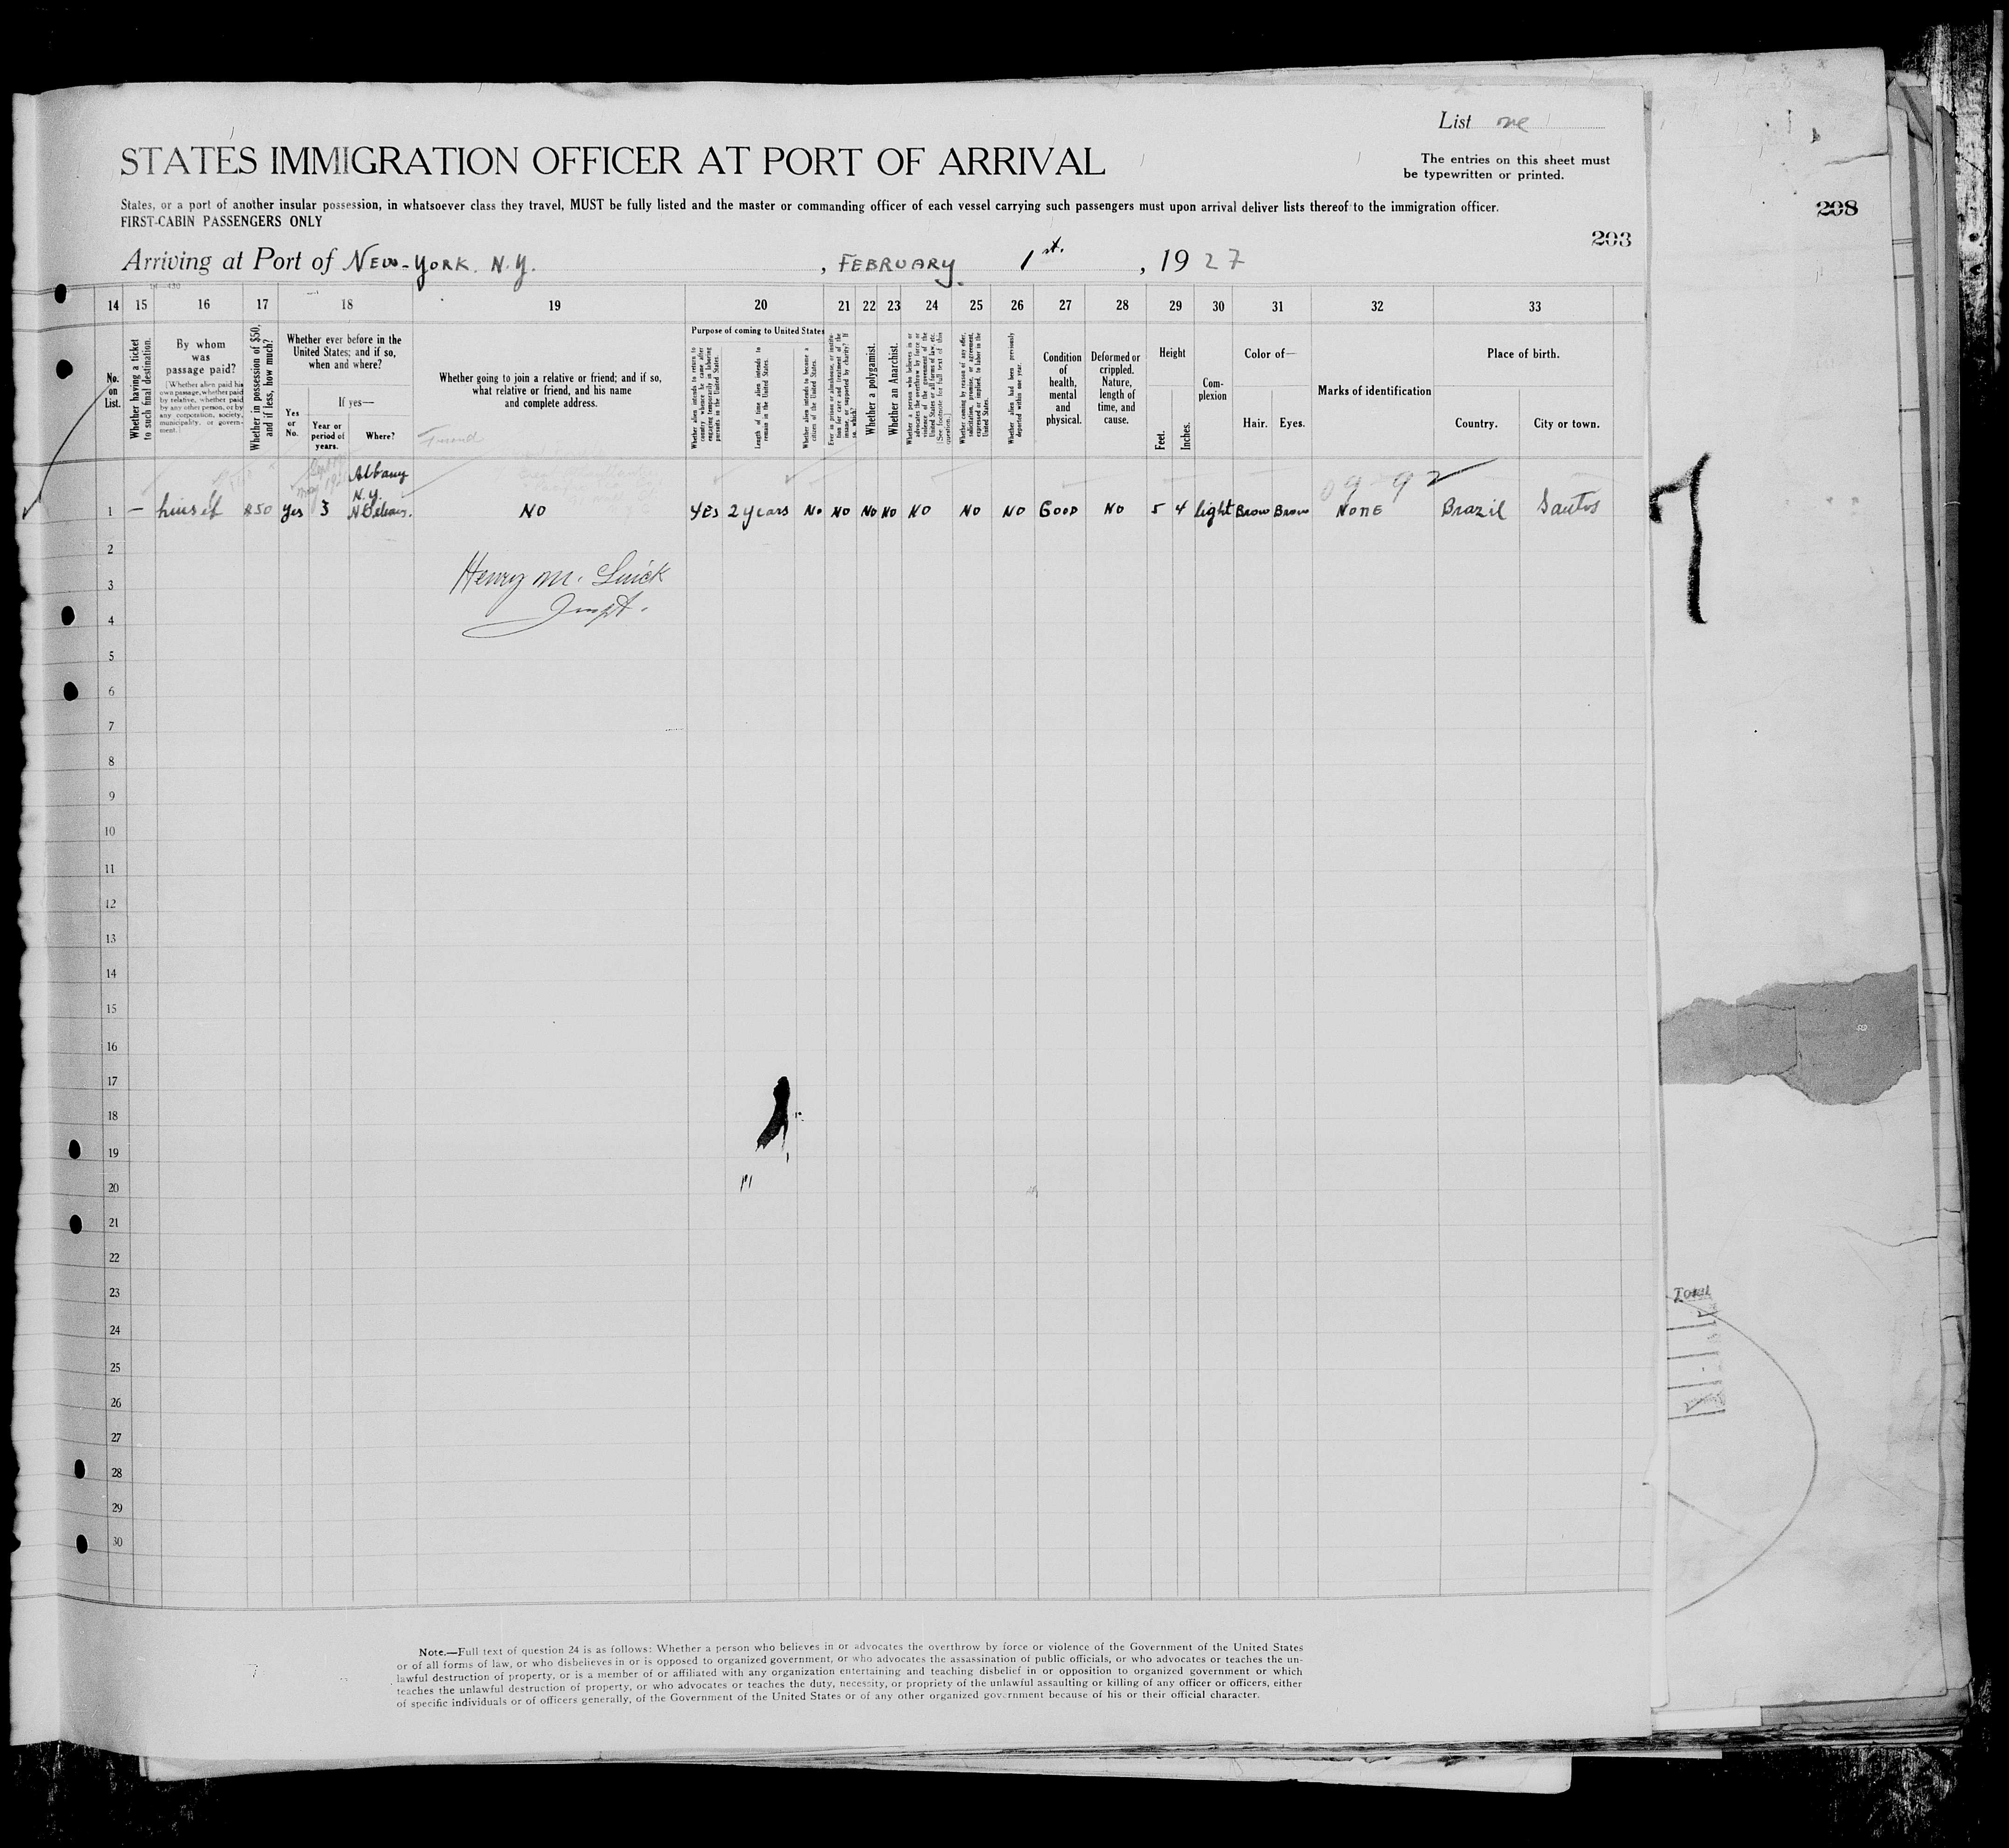 List one
STATES IMMIGRATION OFFICER AT PORT OF ARRIVAL
The entries on this sheet must
be typewritten or printed.
States, or a port of another insular possession, in whatsoever class they travel, MUST be fully listed and the master or commanding officer of each vessel carrying such passengers must upon arrival deliver lists thereof to the immigration officer.
FIRST-CABIN PASSENGERS ONLY
208
203
Arriving at Port of NEW-YORK. N.Y. , FEBRUARY 1st. , 1927
14 15 16 17 18 19 20 21 22 23 24 25 26 27 28 29 30 31 32 33
No. on List.
Whether having a ticket to such final destination.
By whom was passage paid?
[Whether alien paid his own passage, whether paid by relative, whether paid by any other person, or by any corporation, society, municipality, or government.]
Whether in possession of $50, and if less, how much?
Whether ever before in the United States; and if so, when and where?
Yes or No.
If yes—
Year or period of years.
Where?
Whether going to join a relative or friend; and if so, what relative or friend, and his name and complete address.
Friend
Purpose of coming to United States
Whether alien intends to return to country whence he came after engaging temporarily in laboring pursuits in the United States.
Length of time alien intends to remain in the United States.
Whether alien intends to become a citizen of the United States.
Ever in prison or almshouse, or institution for care and treatment of the insane, or supported by charity? If so, which?
Whether a polygamist.
Whether an Anarchist.
Whether a person who believes in or advocates the overthrow by force or violence of the government of the United States or all forms of law, etc. [See footnote for full text of this question.]
Whether coming by reason of any offer, solicitation, promise, or agreement, expressed or implied, to labor in the United States.
Whether alien had been previously deported within one year.
Condition of health, mental and physical.
Deformed or crippled. Nature, length of time, and cause.
Height
Feet. Inches.
Complexion
Color of—
Hair. Eyes.
Marks of identification
Place of birth.
Country. City or town.
Albany
N.Y.
1 — himself $50 yes 3 N Orleans. NO YES 2 years No NO NO NO NO NO NO GOOD NO 5 4 light Brow Brow NONE Brazil Santos
Henry M.
Inspt.
2
3
4
5
6
7
8
9
10
11
12
13
14
15
16
17
18
19
20
21
22
23
24
25
26
27
28
29
30
Total
Note.—Full text of question 24 is as follows: Whether a person who believes in or advocates the overthrow by force or violence of the Government of the United States
or of all forms of law, or who disbelieves in or is opposed to organized government, or who advocates the assassination of public officials, or who advocates or teaches the un-
lawful destruction of property, or is a member of or affiliated with any organization entertaining and teaching disbelief in or opposition to organized government or which
teaches the unlawful destruction of property, or who advocates or teaches the duty, necessity, or propriety of the unlawful assaulting or killing of any officer or officers, either
of specific individuals or of officers generally, of the Government of the United States or of any other organized government because of his or their official character.